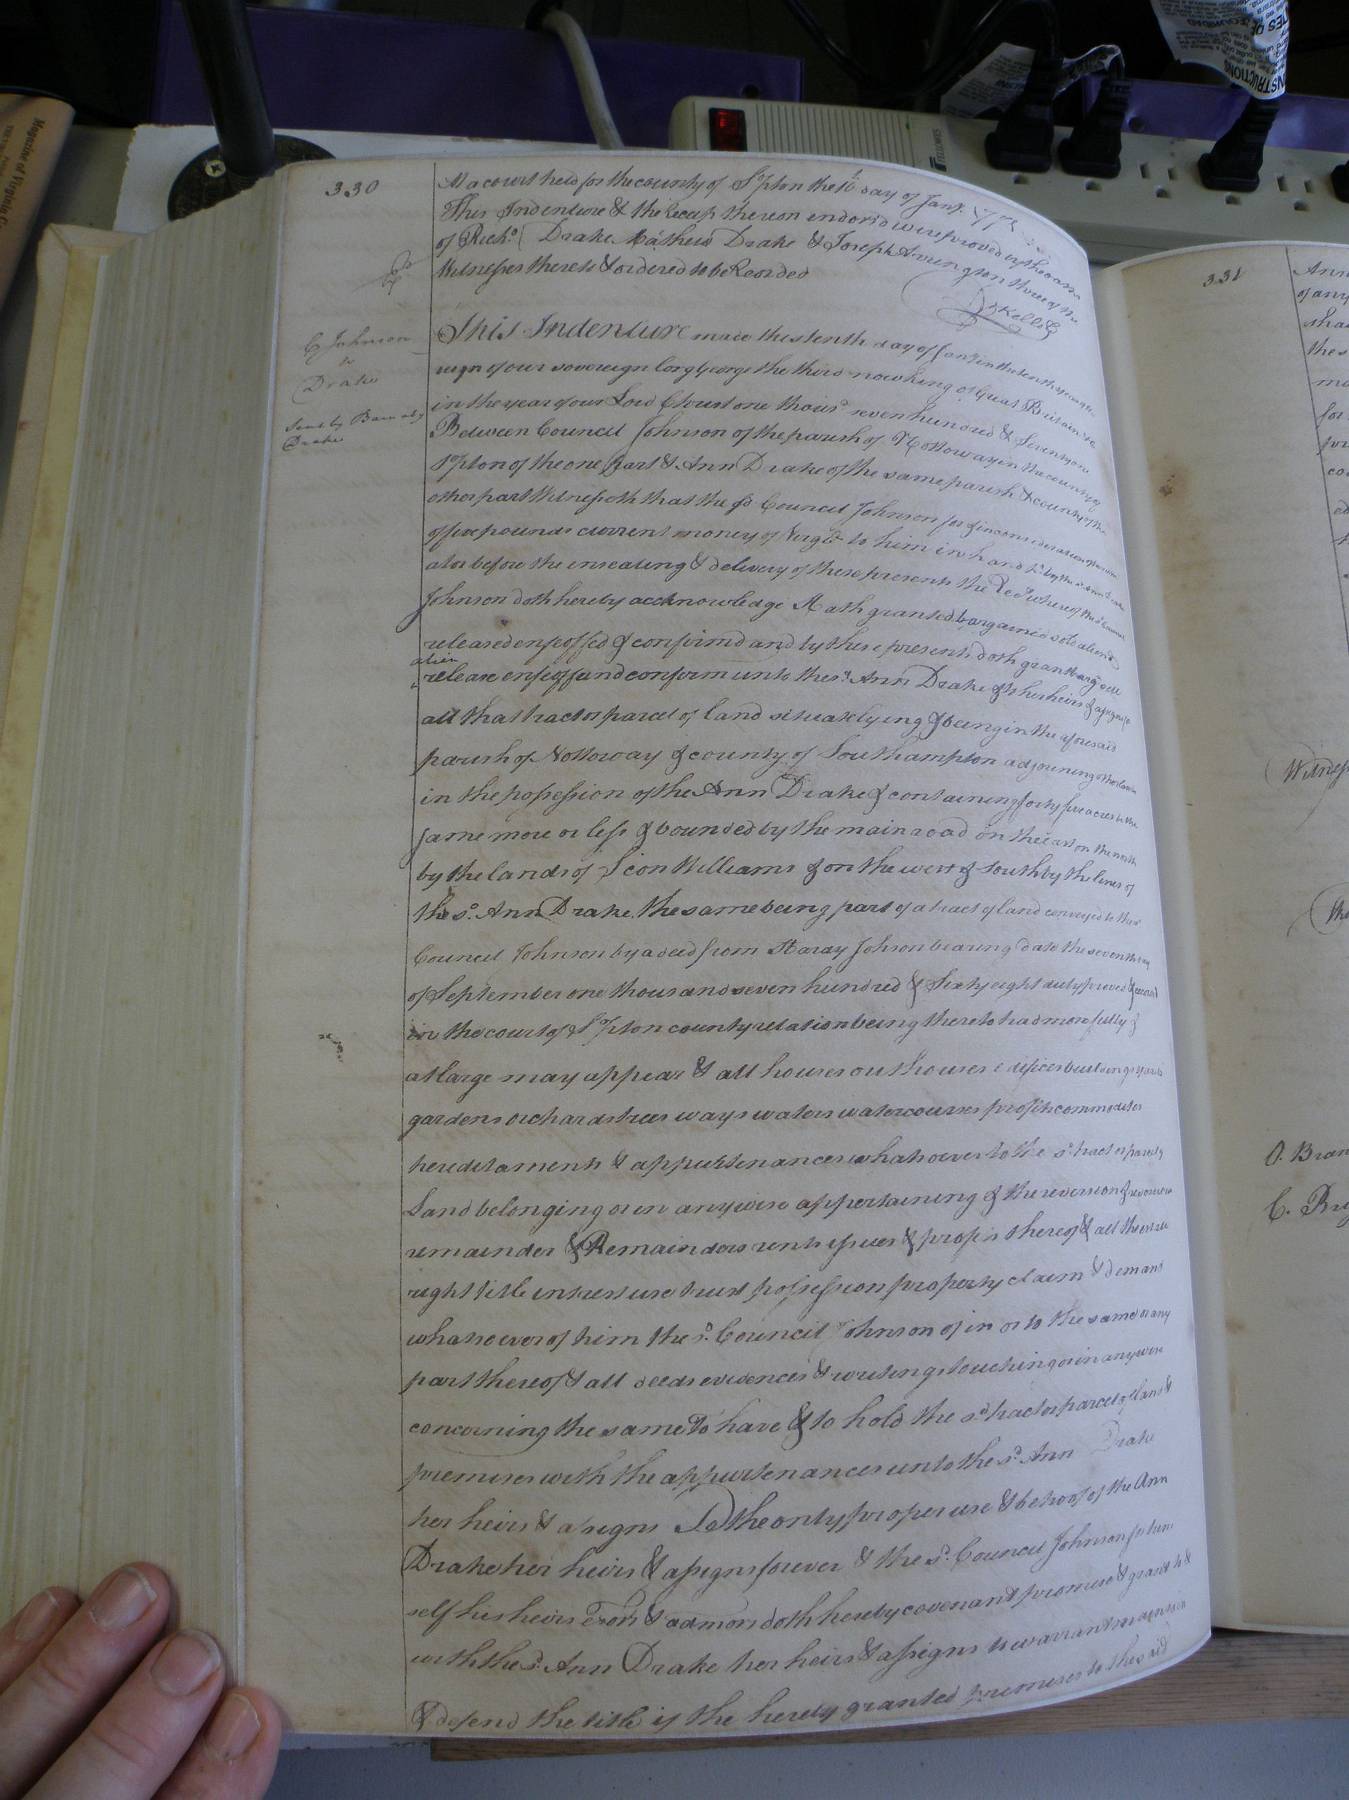 330
At a court held for the county of S°pton the day of Jany.
This Indenture & the Receip thereon endors'd were proved by the oaths
of Rich.d Drake Mathew Drake & Joseph Arrington three of the
Witnesses thereto & ordered to be Recorded
C Johnson
to
Drake
Sent by Barnaby
Drake
This Indenture made this tenth day of Jany in the tenth year of the
reign of our sovereign Lorg George the third now king of Great Britain &c
in the year of our Lord Christ one thous.d seven hundred & Seventy one
Between Council Johnson of the parish of Nottoway in the county of
S°pton of the one part & Ann Drake of the same parish & county of the
other part Witnesseth that the s.d Council Johnson for & in consideration of the sum
of five pounds current money of Virg.a to him in hand p.d by the s.d Ann Drake
at or before the ensealing & delivery of these presents the Rec.t whereof the s.d Council
Johnson doth hereby acknowledge Hath granted bargained sold aliened
released enfeoffed & confirmd and by these presents doth grant barg.n sell
alien
release enfeoff and conform unto the s.d Ann Drake & to her heirs & assigns
all that tract or parcel of land situate lying & being in the aforesaid
parish of Nottoway & county of Southampton adjoining the land
in the possession of the Ann Drake & containing forty five acres be the
same more or less & bounded by the main road on the east on the north
by the lands of Sion Williams & on the west & south by the lines of
the s.d Ann Drake, the same being part of a tract of land conveyed to the s.d
Council Johnson by a deed from Haray Johson bearing date the seventh day
of September one thousand seven hundred & Sixty eight duly proved & record
in the court of S°pton county relation being thereto had more fully &
at large may appear & all houses outhouses edifices buildings yards
gardens orchards trees ways waters watercourses profits commodities
hereditaments & appurtenances whatsoever to the s.d tract or parcel of
Land belonging or in anywise appertaining & the reversion & reversions
remainder & Remainders rents issues & profits thereof & all the estate
right title intrest use trust possession property claim & demand
whatsoever of him the s.d Council Johnson of in or to the same or any
part thereof & all deeds evidences & writings touching or in anywise
concerning the same To have & to hold the s.d tract or parcel of land &
premises with the appurtenances unto the s.d Ann Drake
her heirs & assigns To the only proper use & behoof of the Ann
Drake her heirs & assigns forever & the s.d Council Johnson for him
self his heirs Exors & admors doth hereby covenant promise & grant to &
with the s.d Ann Drake her heirs & assigns to warrant maintain
& defend the title of the hereby granted premises to the said
331
Witness
O. Bran
FELLOWES
Magazine of Virginia
INSTRUCTIONS